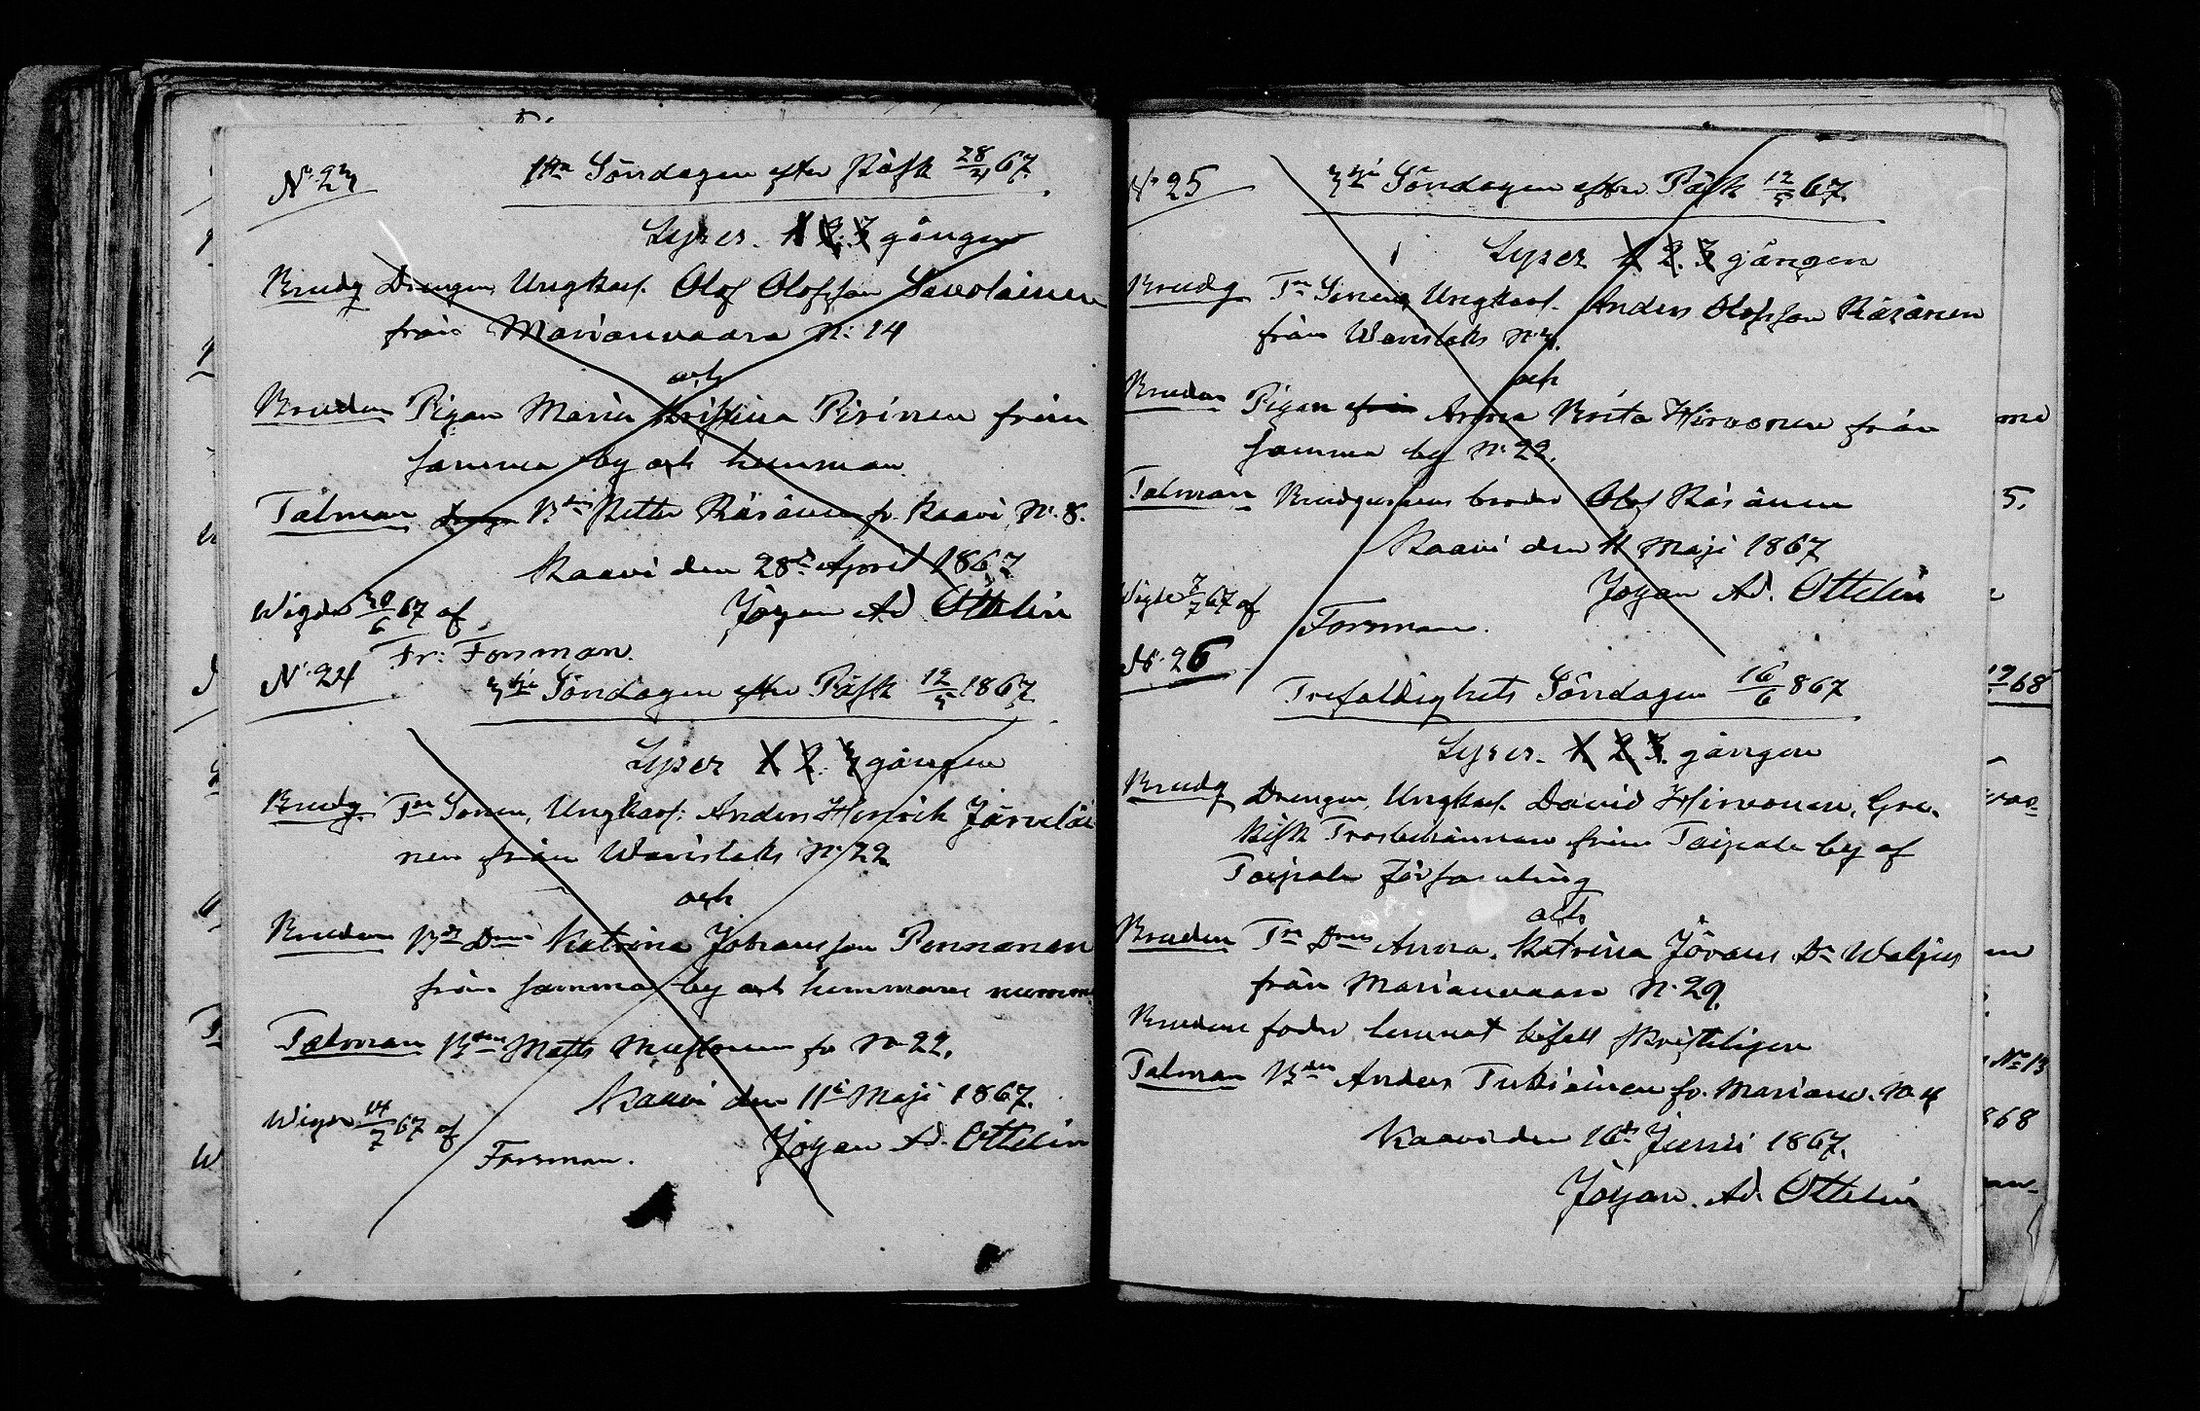 N:o 23
1sta Söndagen efter Påsk 28/4 67.
Lyses. 1 2. 3 gången
Brudg Drengen, Ungkarl. Olof Olofsson Savolainen
från Marianvaara N: 14
och
Bruden Pigan Maria Kristina Pirinen från
samma by och hemman.
Talman Bden Petter Räsänen fr. Kaavi, No. 8.
Kaavi den 28de April 1867
Wigde 30/6 67 af
Johan Ad. Ottelin
Fr: Forsman.
N:o 24
3dje Söndagen efter Påsk 12/5 1867
Lyses 1 2. 3 gången
Brudg. Trs Sonen, Ungkarl: Anders Henrik Järveläi
nen från Wavislaks No 22
och
Bruden Bds Dren Katrina Johansson Pennanen
från samma by och hemmans numm
Talman Bden Matts fr No 22.
Kaavi den 11te Maji 1867.
Wigde 14/7 67 af
Johan Ad. Ottelin
Forsman.
N:o 25
3dje Söndagen efter Påsk 12/5 67.
Lyses 1 2. 3 gången
Brudg Trs Sonen, Ungkarl. Anders Olofsson Räsänen
från Wavislaks No 4.
och
Bruden Pigan från Anna Brita Hirvonen från
samma by No 22.
Talman Brudgummens broder Olof Räsänen
Kaavi den 11 Maji 1867
Johan Ad. Ottelin
Wigde 7/7 67 af
Forsman.
N:o 26
Trefaldighets Söndagen 16/6 867
Lyses. 1. 2 3. gången
Brudg Drengen, Ungkarl. David Hirvonen, Gre-
kisk Trosbekännare från Taipale by af
Taipale församling
och
Bruden Trs Dren Anna Katrina Jörans Dr Waljus
från Marianvaara No 29.
Brudens fader lemnat bifall skriftligen
Talman Bden Anders Tukiainen fr. Marianv. No 4
Kaavi den 16de Junii 1867.
Johan. Ad. Ottelin
me
5.
68
No 13
868